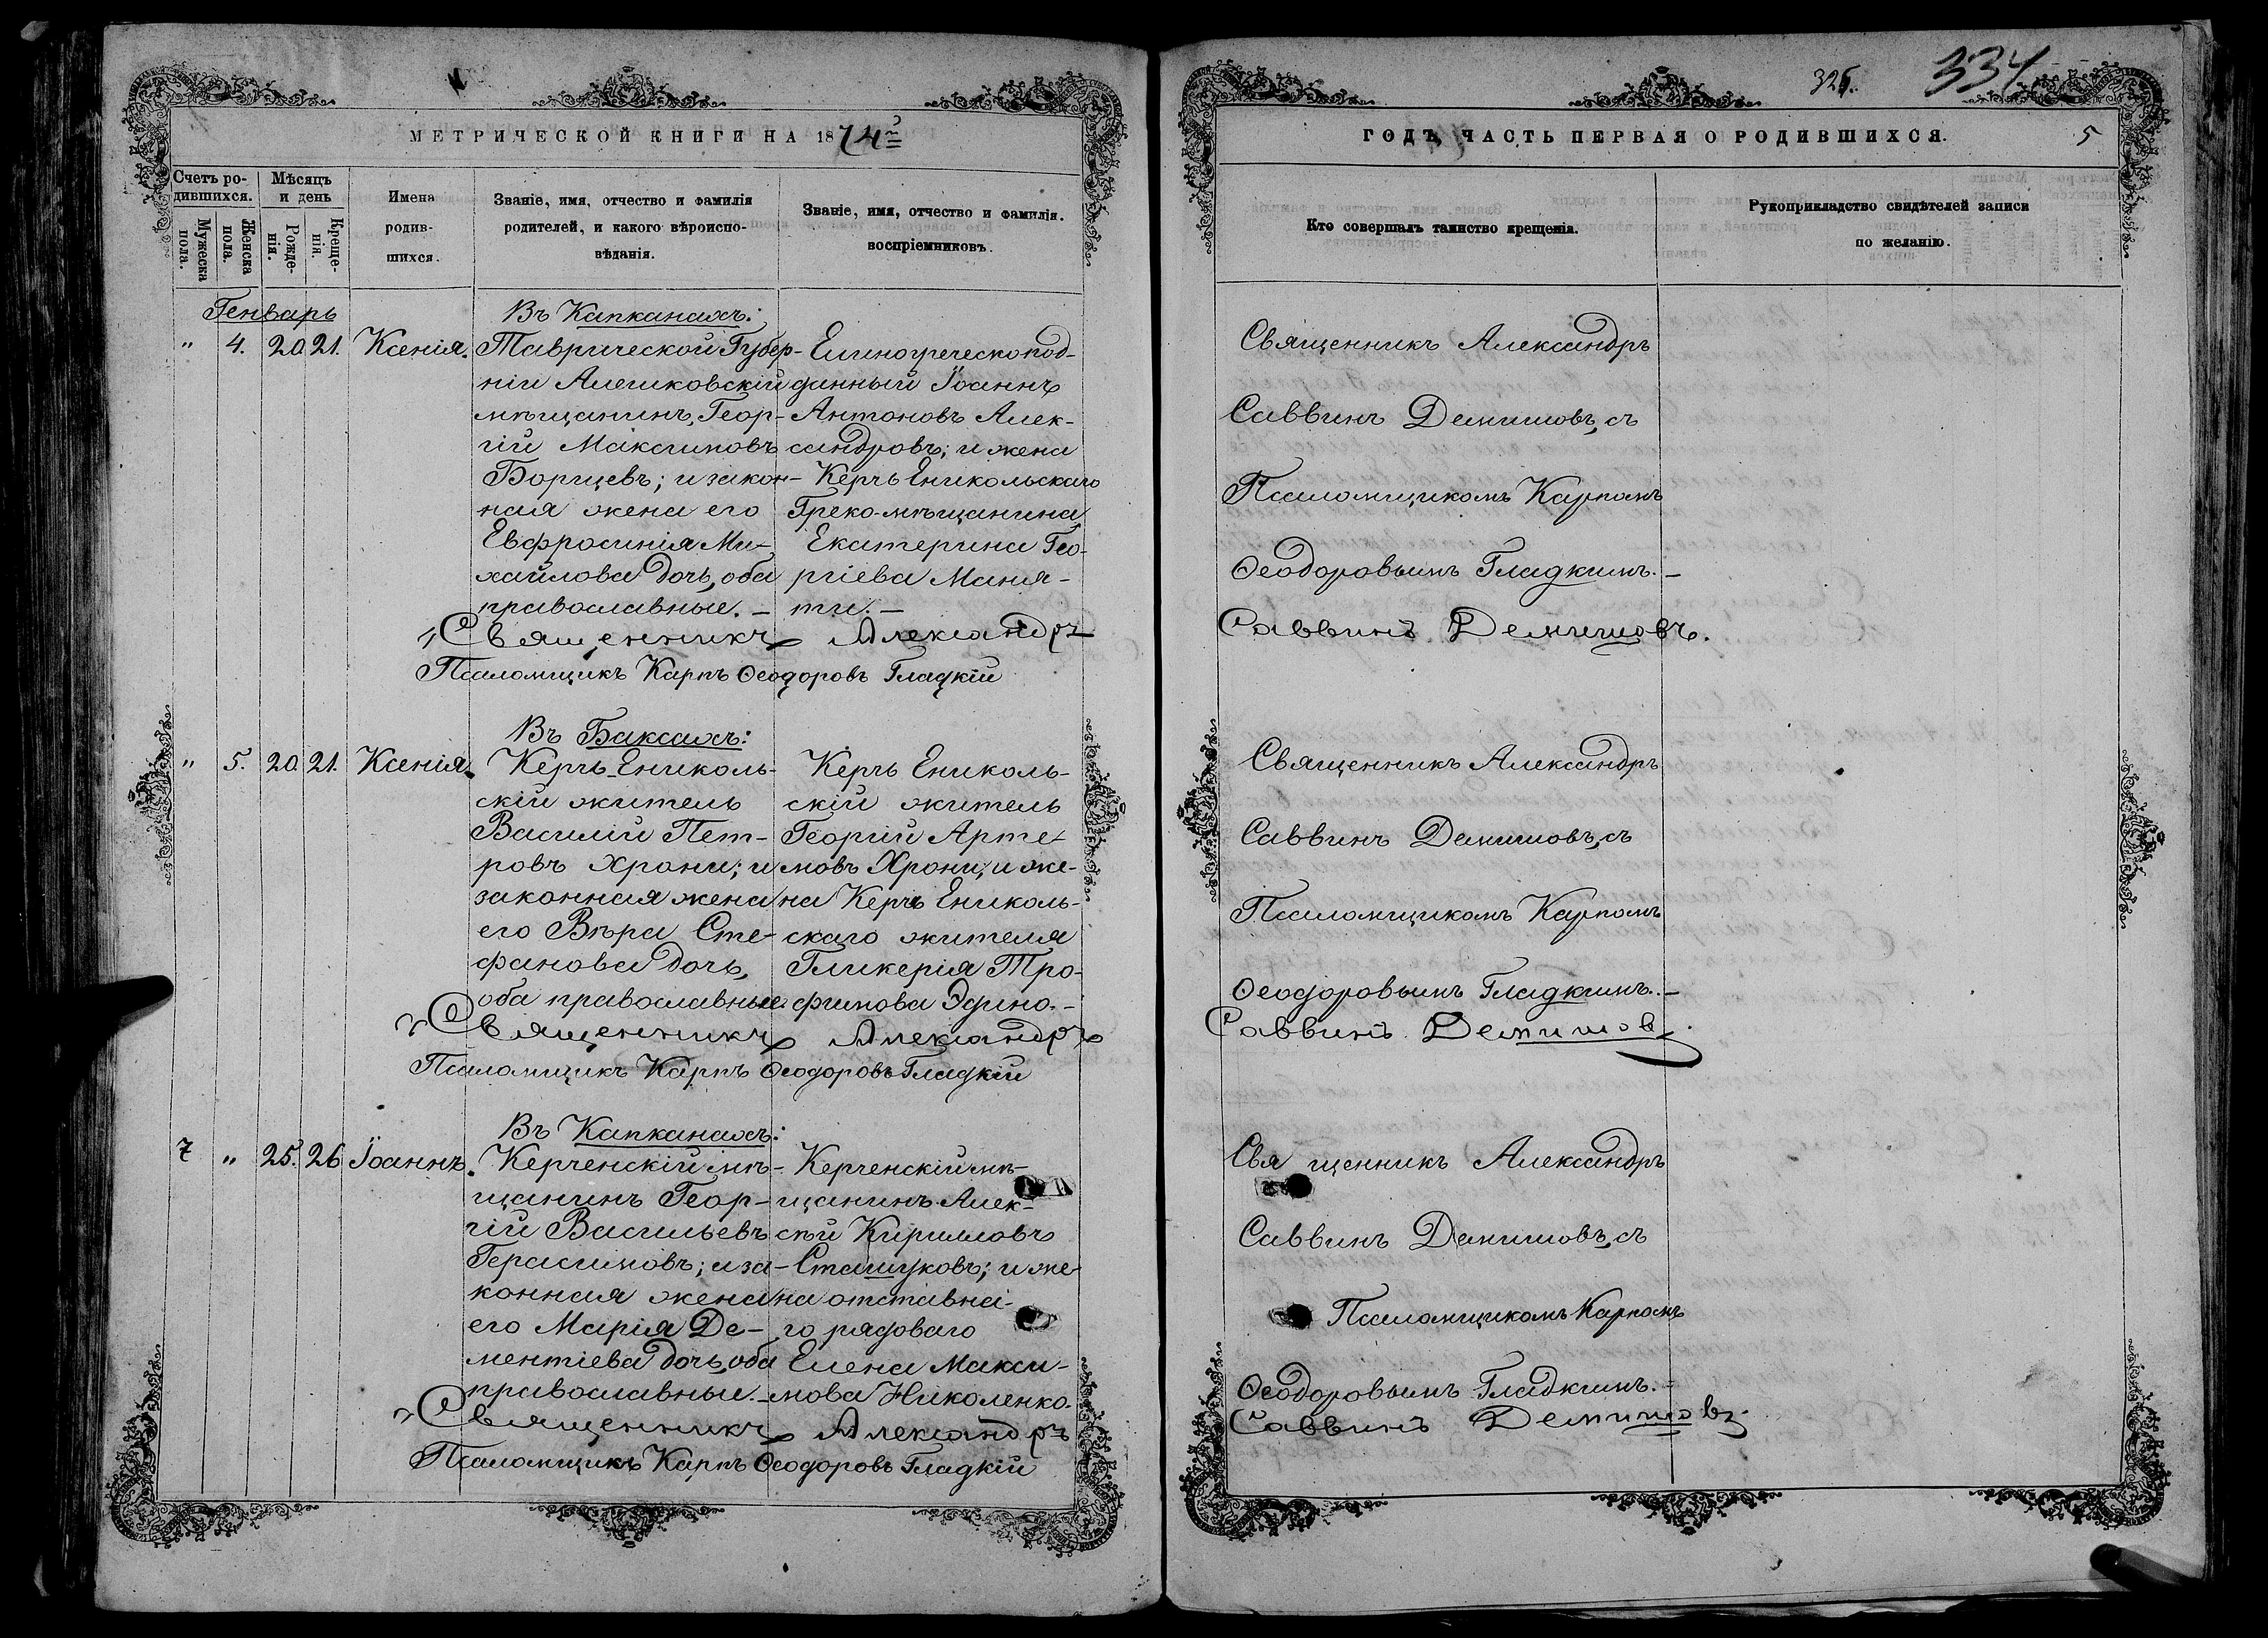 МЕТРИЧЕСКОЙ КНИГИ НА 1874й
Счетъ ро-
дившихся.
Мѣсяцъ
и день
Мужеска
пола.
Женска
пола.
Рожде-
нія.
Креще-
нія.
Имена
родив-
шихся.
Званіе, имя, отчество и фамилія
родителей, и какого вѣроиспо-
вѣданія.
Званіе, имя, отчество и фамилія.
воспріемниковъ.
Генварь
Въ Капканахъ:
" 4. 20. 21. Ксенія.
Таврической Губер-
ніи Алешковскій
мѣщанинъ, Геор-
гій Максимовъ
Борщевъ; и закон-
ная жена его
Евфросинія Ми-
хайлова дочь, оба
православные. –
Елиногреческопод-
данный Іоаннъ
Антоновъ Алек-
сандровъ; и жена
Керчь Еникольскаго
Греко-мѣщанина
Екатерина Гео-
ргіева Маня-
ти. –
Священникъ Александръ
Псаломщикъ Карпъ Ѳеодоровъ Гладкій
Въ Баксахъ:
" 5. 20. 21. Ксенія.
Керчь-Ениколь-
скій житель
Василій Пет-
ровъ Хрони; и
законная жена
его Вѣра Сте-
фанова дочь,
оба православные.
Керчь Ениколь-
скій житель
Георгій Арте-
мовъ Хрони; и же-
на Керчь Ениколь-
скаго жителя
Гликерія Тро-
фимова Эдино. –
Священникъ Александръ
Псаломщикъ Карпъ Ѳеодоровъ Гладкій
Въ Капканахъ:
7 " 25. 26 Іоаннъ.
Керченскій мѣ-
щанинъ Геор-
гій Васильевъ
Герасимовъ; и за-
конная жена
его Марія Де-
ментіева дочь, оба
православные. –
Керченскій мѣ-
щанинъ Алек-
сѣй Кирилловъ
Сташуковъ; и же-
на отставна-
го рядоваго
Елена Макси-
мова Николенко.
Священникъ Александръ
Псаломщикъ Карпъ Ѳеодоровъ Гладкій
325.
334
ГОДЪ, ЧАСТЬ ПЕРВАЯ О РОДИВШИХСЯ.
5
Кто совершалъ таинство крещенія.
Рукоприкладство свидѣтелей записи
по желанію.
Священникъ Александръ
Саввинъ Демишовъ, съ
Псаломщикомъ Карпомъ
Ѳеодоровымъ Гладкимъ. –
Саввинъ Демишовъ.
Священникъ Александръ
Саввинъ Демишовъ, съ
Псаломщикомъ Карпомъ
Ѳеодоровымъ Гладкимъ. –
Саввинъ Демишовъ.
Священникъ Александръ
Саввинъ Демишовъ, съ
Псаломщикомъ Карпомъ
Ѳеодоровымъ Гладкимъ. –
Саввинъ Демишовъ.